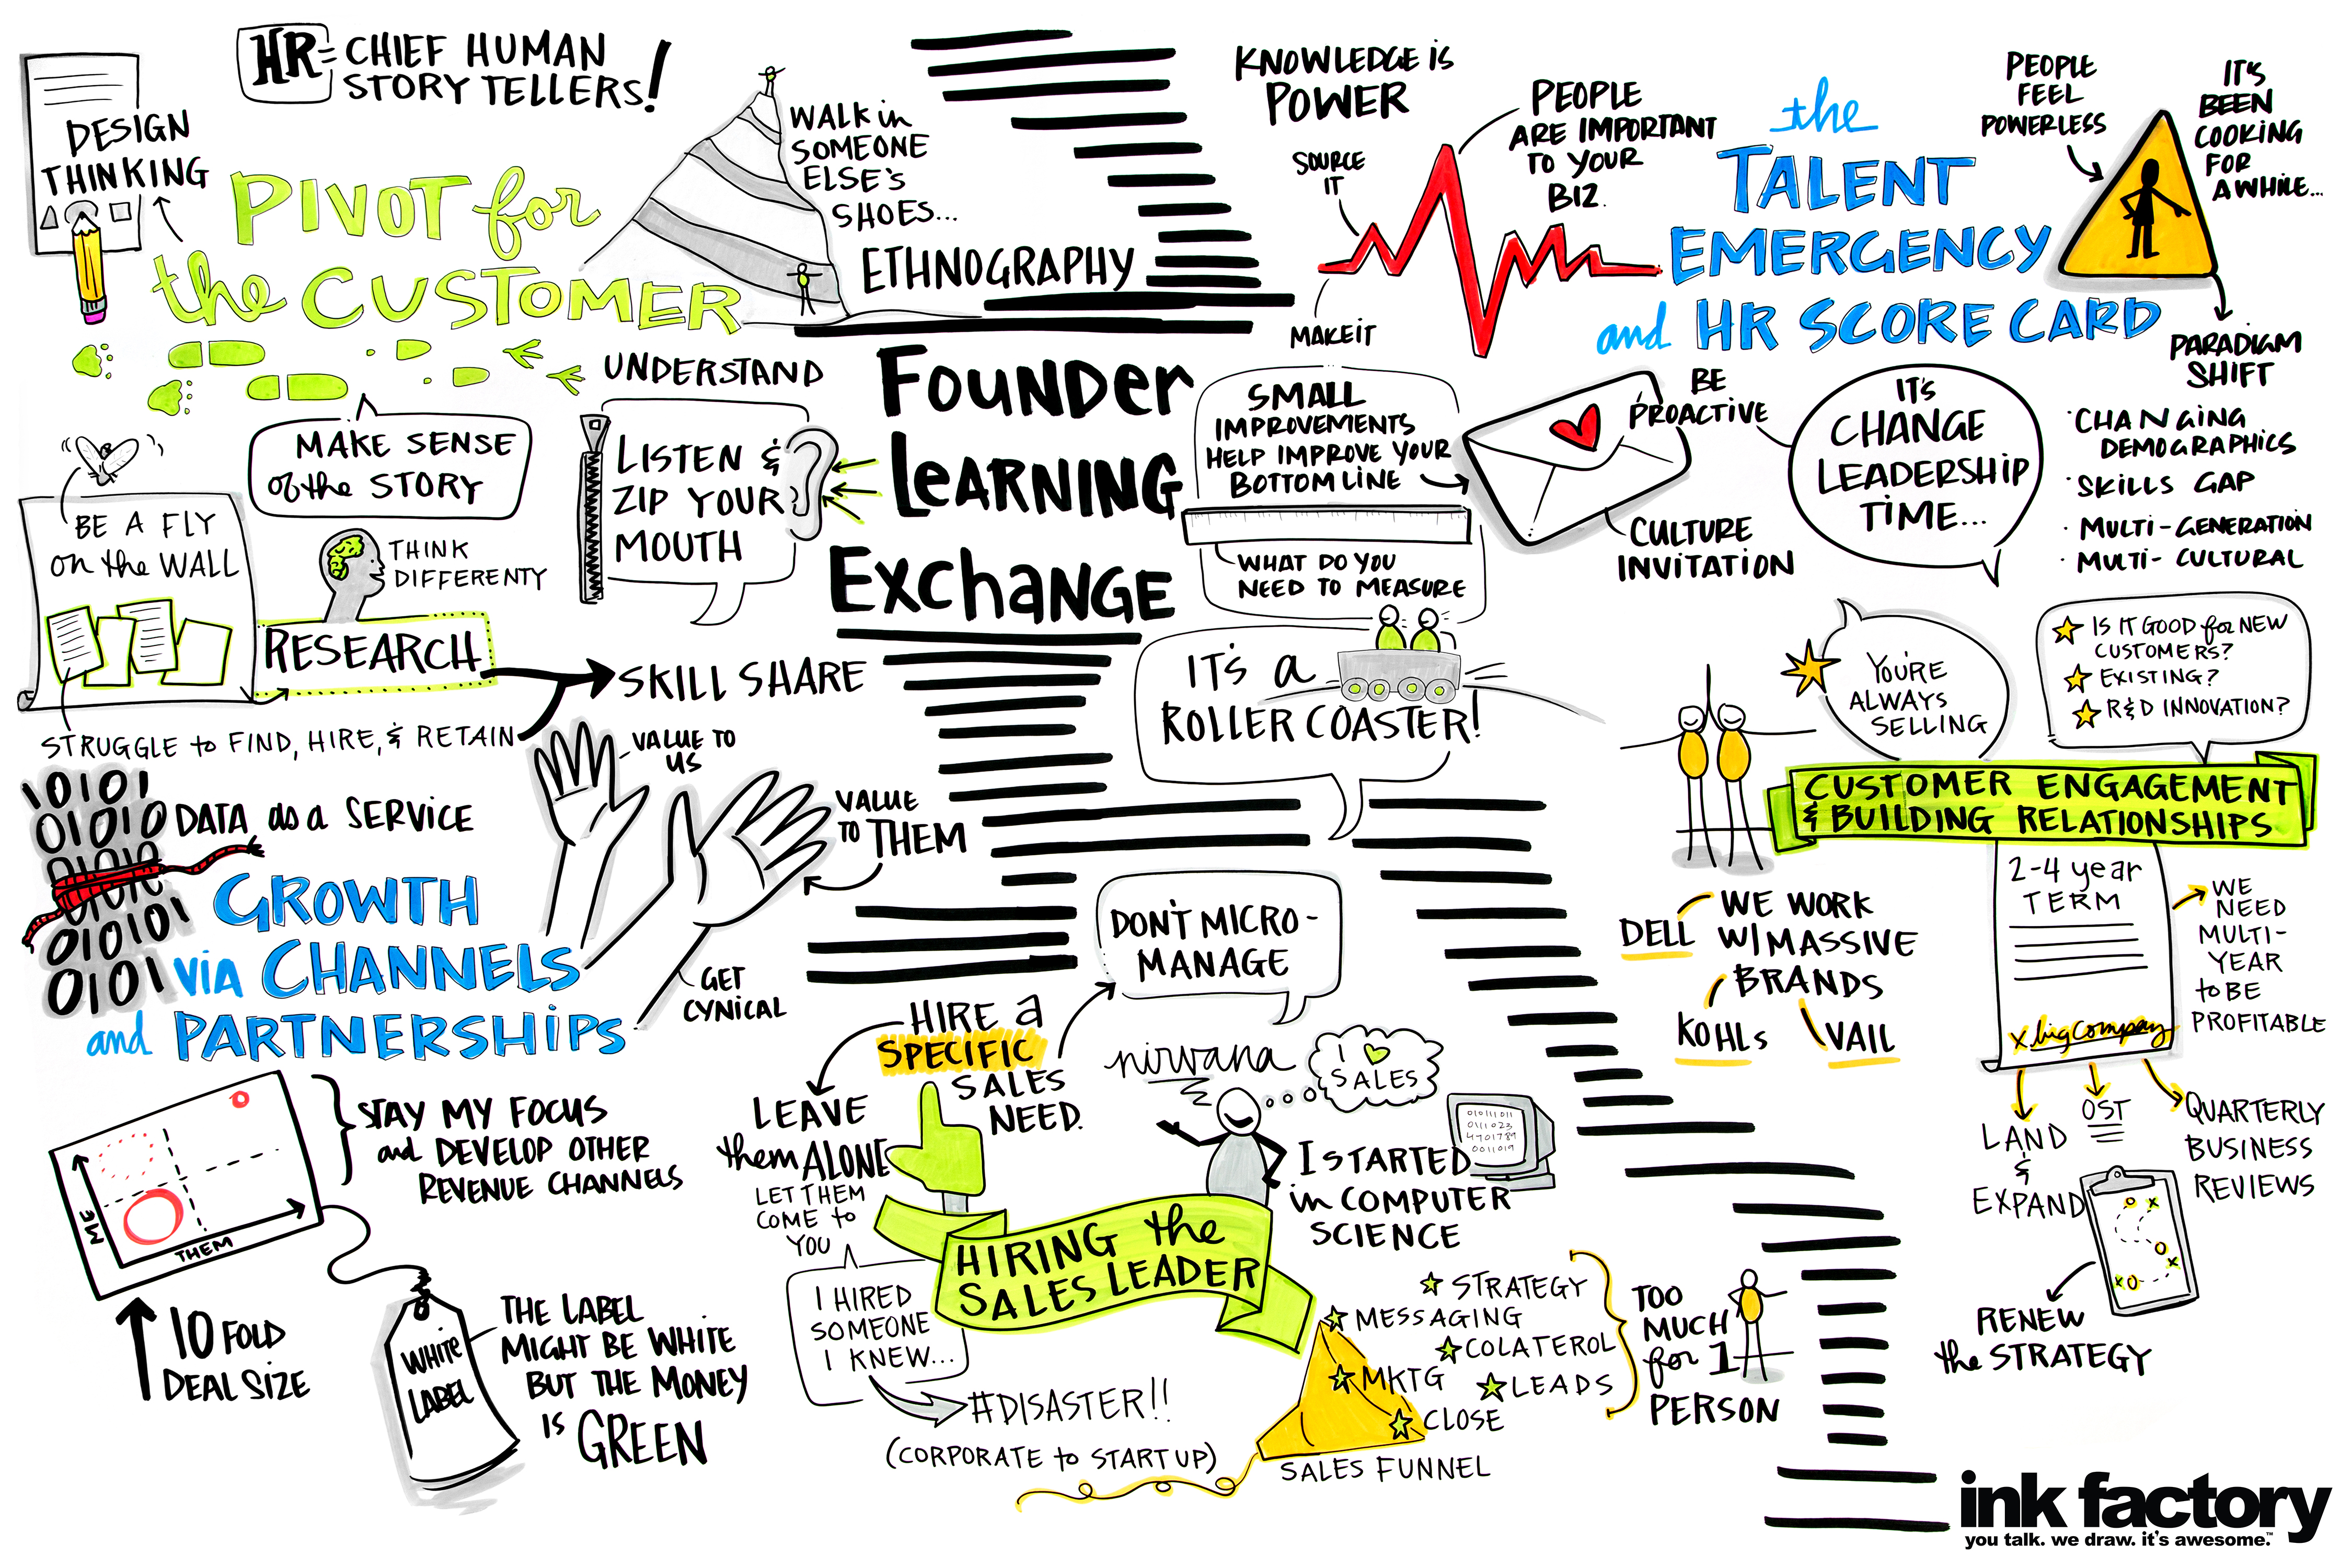 HR = CHIEF HUMAN
STORY TELLERS!
DESIGN
THINKING
PIVOT for
the CUSTOMER
WALK in
SOMEONE
ELSE'S
SHOES...
ETHNOGRAPHY
UNDERSTAND
MAKE SENSE
of the STORY
LISTEN &
ZIP YOUR
MOUTH
BE A FLY
on the WALL
THINK
DIFFERENTY
RESEARCH
SKILL SHARE
STRUGGLE to FIND, HIRE, & RETAIN
Founder
Learning
Exchange
KNOWLEDGE iS
POWER
SOURCE
IT
MAKE iT
PEOPLE
ARE IMPORTANT
TO YOUR
BIZ.
the
TALENT
EMERGENCY
and HR SCORE CARD
PEOPLE
FEEL
POWERLESS
IT'S
BEEN
COOKING
FOR
A WHILE...
PARADIGM
SHIFT
• CHANGING
DEMOGRAPHICS
• SKILLS GAP
• MULTI-GENERATION
• MULTI-CULTURAL
SMALL
IMPROVEMENTS
HELP IMPROVE YOUR
BOTTOM LINE
WHAT DO YOU
NEED TO MEASURE
BE
PROACTIVE
CULTURE
INVITATION
IT'S
CHANGE
LEADERSHIP
TIME...
IT'S a
ROLLER COASTER!
YOU'RE
ALWAYS
SELLING
IS IT GOOD for NEW
CUSTOMERS?
EXISTING?
R&D INNOVATION?
CUSTOMER ENGAGEMENT
& BUILDING RELATIONSHIPS
DELL
WE WORK
W/ MASSIVE
BRANDS
KOHLs
VAIL
2-4 year
TERM
x big company
WE
NEED
MULTI-
YEAR
to BE
PROFITABLE
LAND
&
EXPAND
OST
QUARTERLY
BUSINESS
REVIEWS
RENEW
the STRATEGY
VALUE TO
US
VALUE
TO THEM
GET
CYNICAL
10101
01010
01010
01010
010101
0101
DATA as a SERVICE
GROWTH
ViA CHANNELS
and PARTNERSHIPS
ME
THEM
STAY MY FOCUS
and DEVELOP OTHER
REVENUE CHANNELS
10 FOLD
DEAL SIZE
WHITE
LABEL
THE LABEL
MIGHT BE WHITE
BUT THE MONEY
IS GREEN
HIRE a
SPECIFIC
SALES
NEED.
DON'T MICRO-
MANAGE
LEAVE
them ALONE
LET THEM
COME to
YOU
I HIRED
SOMEONE
I KNEW...
#DISASTER!!
(CORPORATE to START UP)
HIRING the
SALES LEADER
nirvana
I
SALES
01011011
0111023
4701789
0011019
I STARTED
in COMPUTER
SCIENCE
STRATEGY
MESSAGING
COLATEROL
MKTG
LEADS
CLOSE
SALES FUNNEL
TOO
MUCH
for 1
PERSON
ink factory
you talk. we draw. it's awesome.™